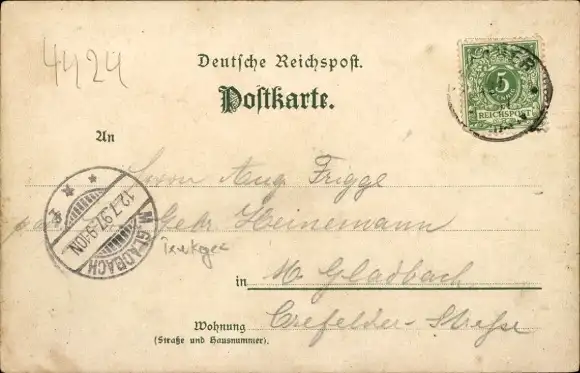 4424
Deutsche Reichspost.
Postkarte.
5
REICHSPOST
An
Herrn Aug. Frigge
Gebr Heinemann
M. GLADBACH
12.7.97.9-10N.
in M. Gladbach
Crefelder-Straße
Wohnung
(Straße und Hausnummer).